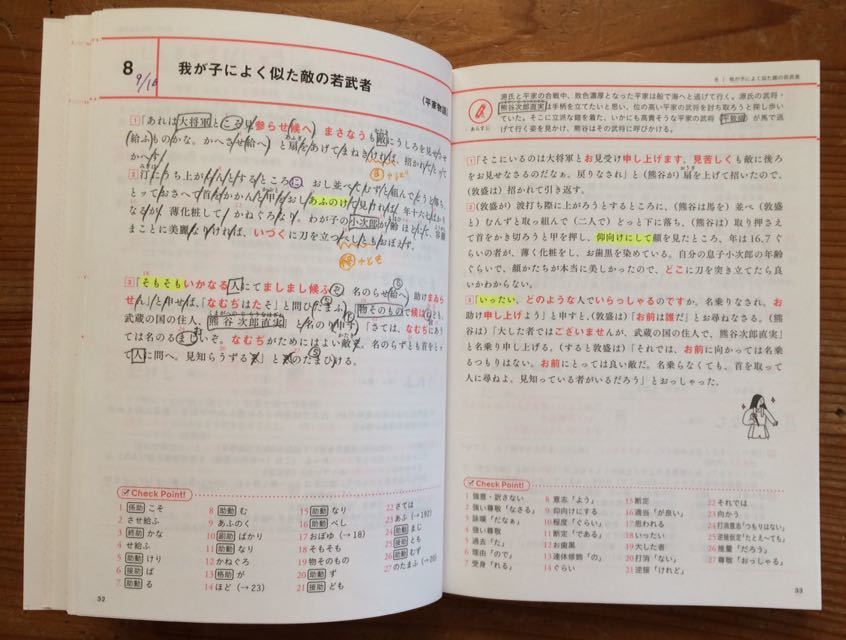 8
9/16
我が子によく似た敵の若武者
(平家物語)
1「あれは大将軍とこそ見参らせ候へ。まさなうも敵にうしろを見せさせ
給ふものかな。かへさせ給へ」と扇をあげてまねきければ、招かれてとって
かへす。
2 汀にうち上がらんとするところに、おし並べてむずと組んでどうど落ち、
とっておさへて首をかかんと甲をおしあふのけて見ければ、年十六七ばかり
なるが、薄化粧して、かねぐろなり。わが子の小次郎が齢ほどにて、容顔
まことに美麗なりければ、いづくに刀を立つべしともおぼえず。
3「そもそもいかなる人にてましまし候ふぞ。名のらせ給へ。助けまゐらせ
ん」と申せば、「なむぢはたそ」と問ひたまふ。「物そのもので候はねども、
武蔵の国の住人、熊谷次郎直実」と名のり申す。「さては、なむぢにあう
ては名のるまじいぞ。なむぢがためにはよい敵ぞ。名のらずとも首をとっ
て人に問へ。見知らうずるぞ」とぞのたまひける。
Check Point!
1 係助 こそ
2 させ給ふ
3 終助 かな
4 せ給ふ
5 助動 けり
6 接助 ば
7 助動 る
8 助動 む
9 あふのく
10 副助 ばかり
11 助動 なり
12 かねぐろ
13 格助 が
14 ほど(→23)
15 助動 なり
16 助動 べし
17 おぼゆ(→18)
18 そもそも
19 物そのもの
20 助動 ず
21 接助 ども
22 さては
23 あふ(→192)
24 助動 まじ
25 接助 とも
26 助動 むず
27 のたまふ(→20)
32
8 | 我が子によく似た敵の若武者
あらすじ
源氏と平家の合戦中、敗色濃厚となった平家は船で海へと逃げて行く。源氏の武将・
熊谷次郎直実は手柄を立てたいと思い、位の高い平家の武将を討ち取ろうと探し歩い
ていた。そこに立派な鎧を着た、いかにも高貴そうな平家の武将(平敦盛)が馬で逃
げて行く姿を見かけ、熊谷はその武将に呼びかける。
1「そこにいるのは大将軍とお見受け申し上げます。見苦しくも敵に後ろ
をお見せなさるのだなぁ。戻りなされ」と(熊谷が)扇を上げて招いたので、
(敦盛は)招かれて引き返す。
2(敦盛が)波打ち際に上がろうとするところに、(熊谷は馬を)並べ(敦盛
と)むんずと取っ組んで(二人で)どっと下に落ち、(熊谷は)取り押さえ
て首をかき切ろうと甲を押し、仰向けにして顔を見たところ、年は16,7ぐ
らいの者が、薄く化粧をし、お歯黒を染めている。自分の息子小次郎の年齢
ぐらいで、顔かたちが本当に美しかったので、どこに刀を突き立てたら良
いかわからない。
3「いったい、どのような人でいらっしゃるのですか。名乗りなされ。お
助け申し上げよう」と申すと、(敦盛は)「お前は誰だ」とお尋ねなさる。(熊
谷は)「大した者ではございませんが、武蔵の国の住人、熊谷次郎直実」
と名乗り申し上げる。(すると敦盛は)「それでは、お前に向かっては名乗
るつもりはない。お前にとっては良い敵だ。名乗らなくても、首を取って
人に尋ねよ。見知っている者がいるだろう」とおっしゃった。
Check Point!
1 強意・訳さない
2 強い尊敬「なさる」
3 詠嘆「だなぁ」
4 強い尊敬
5 過去「た」
6 理由「ので」
7 受身「れる」
8 意志「よう」
9 仰向けにする
10 程度「ぐらい」
11 断定「である」
12 お歯黒
13 連体修飾「の」
14 ぐらい
15 断定
16 適当「が良い」
17 思われる
18 いったい
19 大した者
20 打消「ない」
21 逆接「けれど」
22 それでは
23 向かう
24 打消意志「つもりはない」
25 逆接仮定「たとえ〜ても」
26 推量「だろう」
27 尊敬「おっしゃる」
33